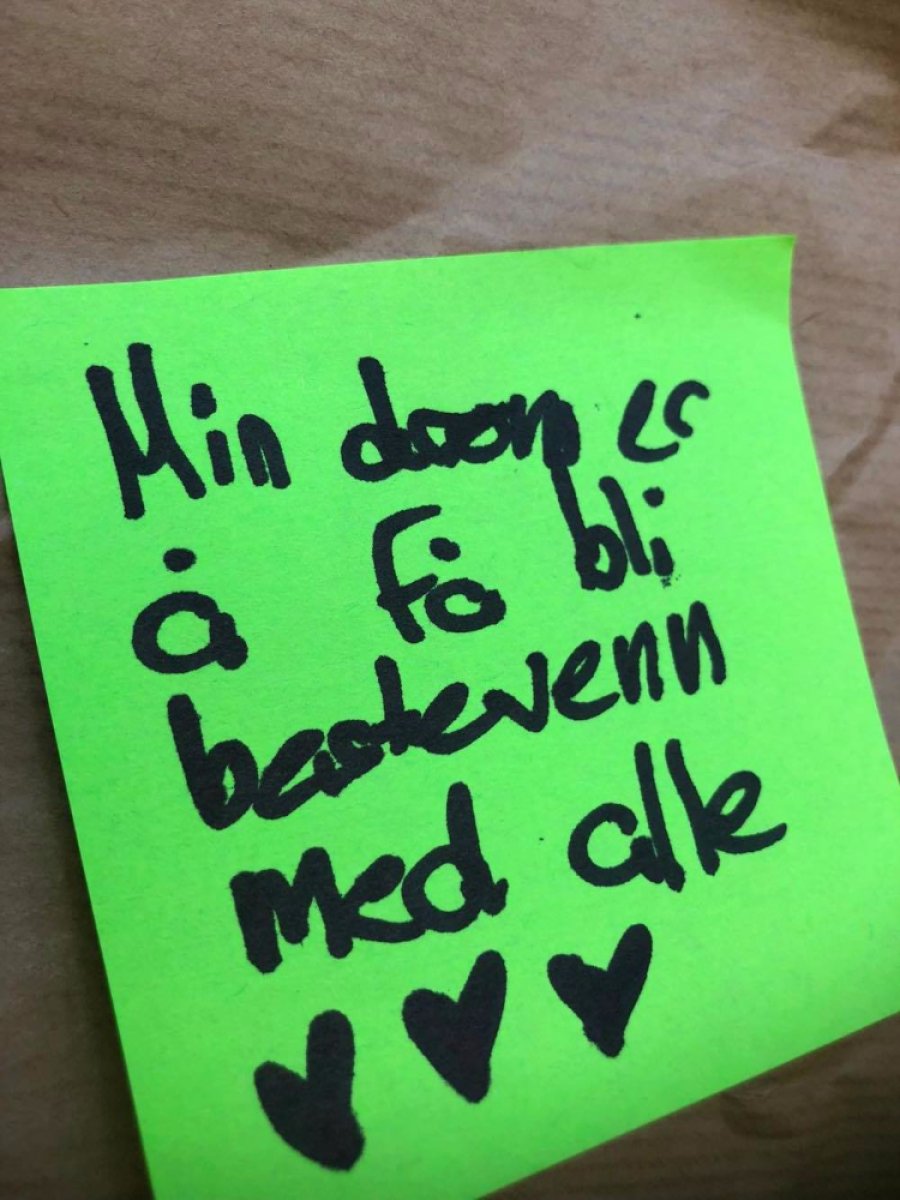 Min drøm er
å få bli
bestevenn
med alle